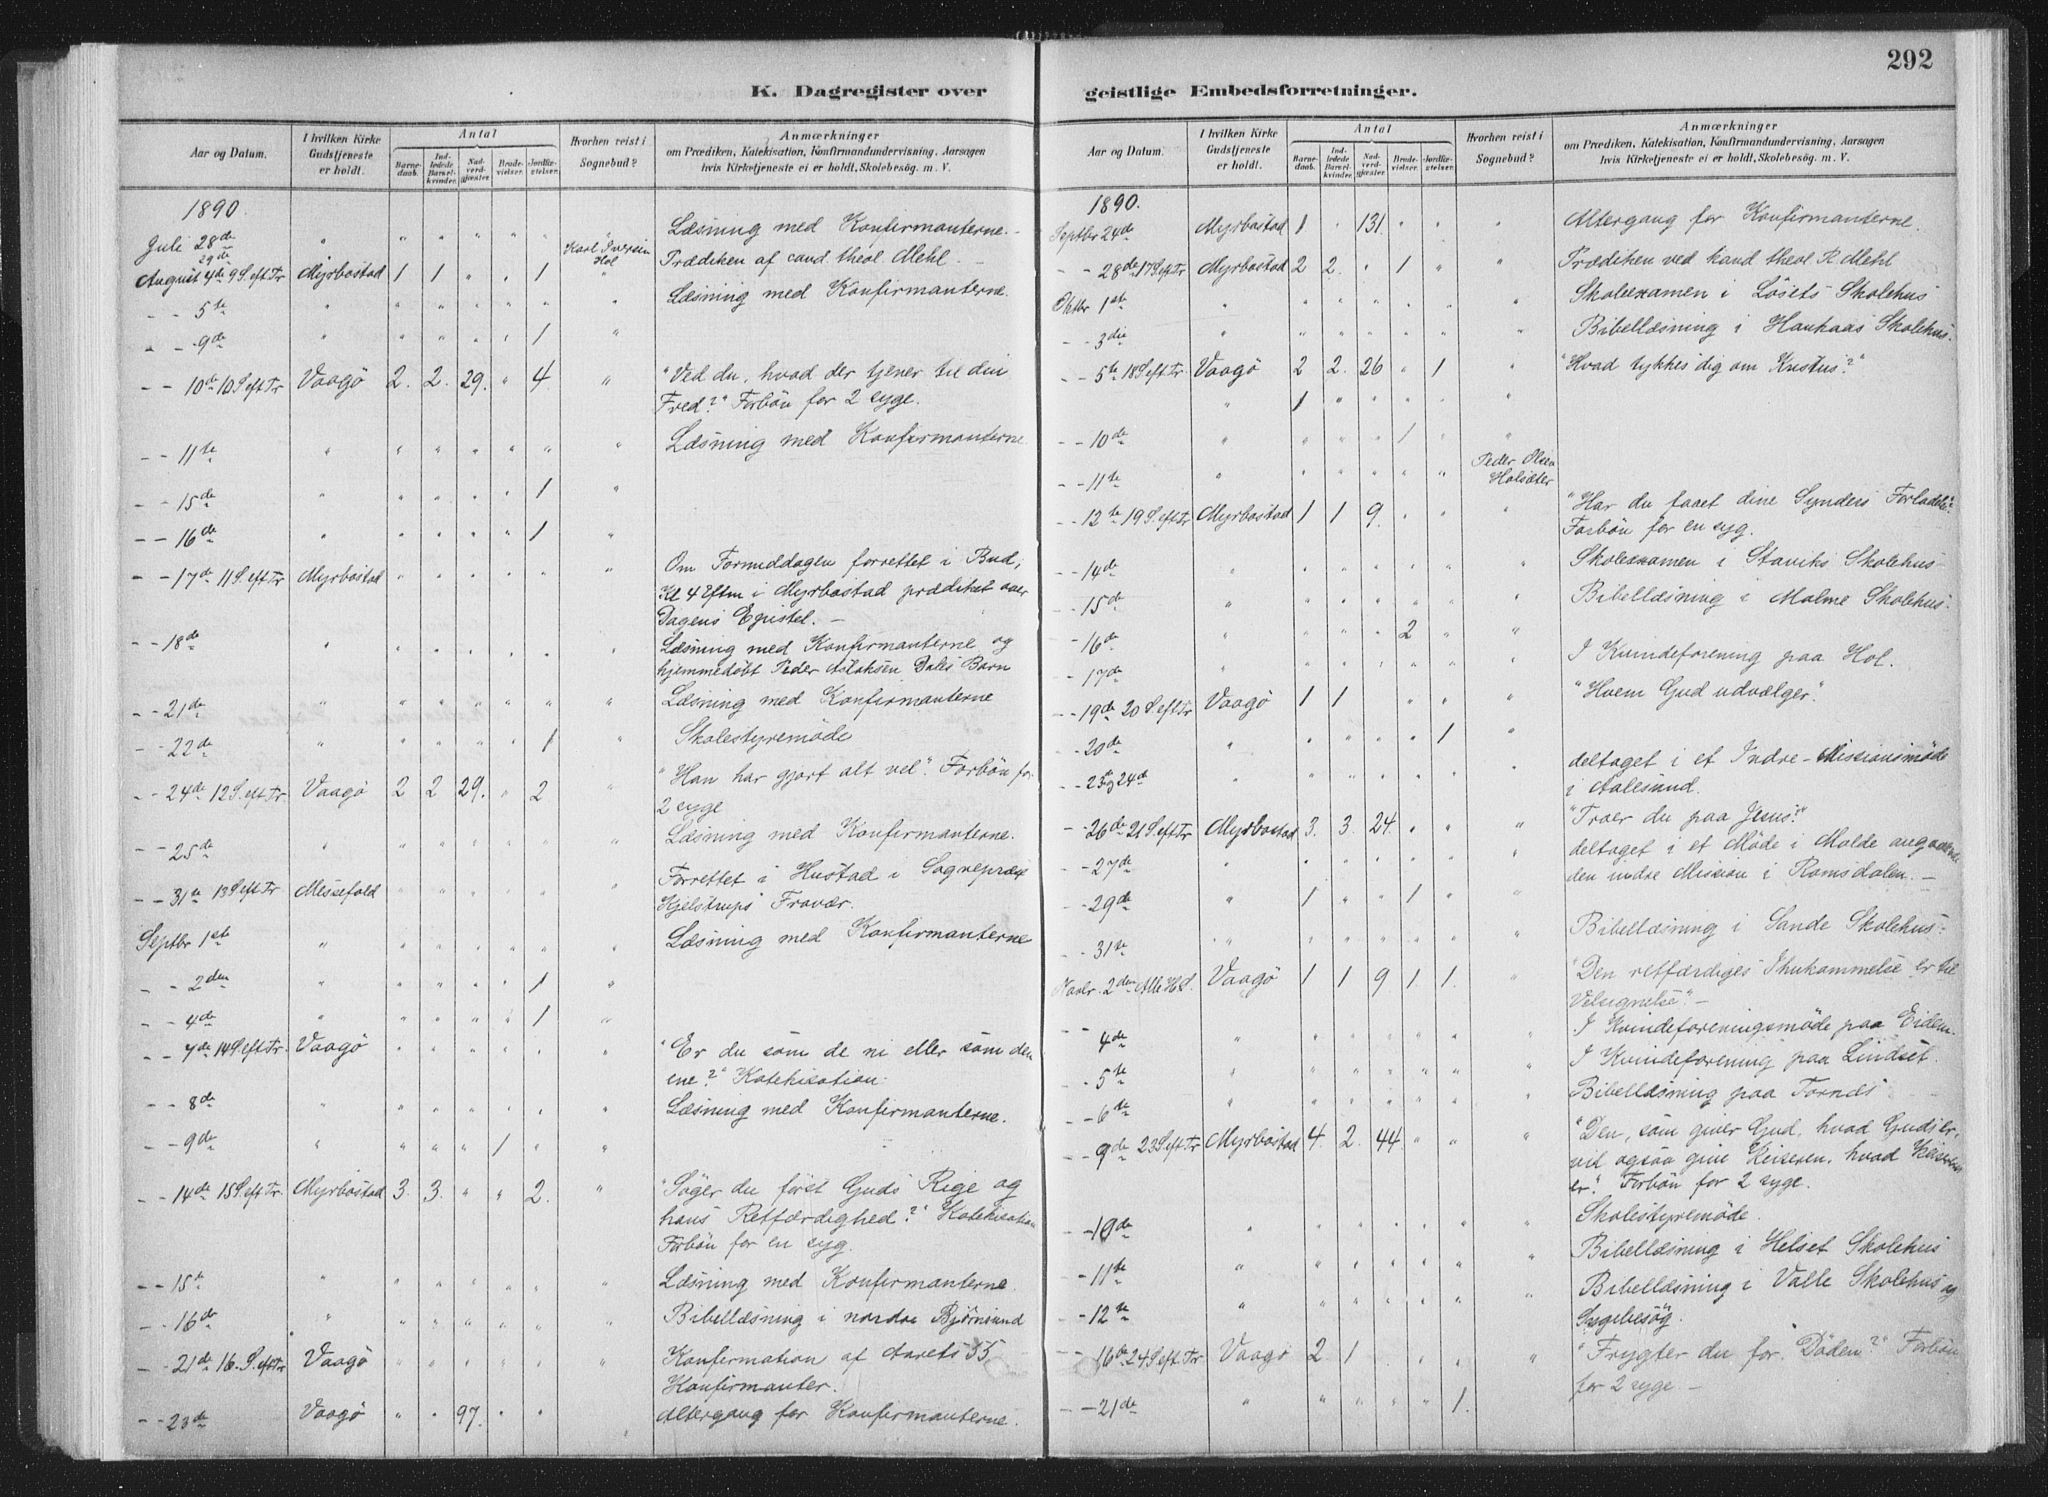 292
K. Dagregister over geistlige Embedsforretninger.
Aar og Datum. I hvilken Kirke Gudstjeneste er holdt. Antal Barnedaab. Indledede Barselkvinder. Nadverdgjæster. Brudevielser. Jordfæstelser. Hvorhen reist i Sognebud? Anmærkninger om Prædiken, Katekisation, Konfirmandundervisning, Aarsagen hvis Kirketjeneste ei er holdt, Skolebesøg. m. V.
1890.
Juli 28de " " " " " " " Læsning med Konfirmanterne. -
29de Karl Iversen Hol
August 4de 9 S. eft Tr Myrbostad 1 1 " " 1 " Prædiken af cand. theol. Mehl. -
- - 5te " " " " " " " Læsning med Konfirmanterne.
- - 9de " " " " " 1 "
- - 10de 10 S. eft Tr Vaagø 2. 2. 29. " 4 " "Ved du, hvad der tjener til din
Fred?" Forbøn for 2 syge.
- - 11te " " " " " " " Læsning med Konfirmanterne
- - 15de " " " " " 1 "
- - 16de " " " " " 1 "
- - 17de 11 S. eft Tr Myrbostad " " " " " " Om Formiddagen forrettet i Bud,
Kl 4 Eftm i Myrbostad prædiket over
Dagens Epistel. -
- - 18de " " " " " " " Læsning med Konfirmanterne og
hjemmedøbt Peder Aslaksen Dales Barn
- - 21de " " " " " " " Læsning med Konfirmanterne
- - 22de " " " " " 1 " Skolestyremøde
- - 24de 12 S. eft Tr Vaagø 2 2 29. " 2 " "Han har gjort alt vel". Forbøn for
2 syge
- - 25de " " " " " " " Læsning med Konfirmanterne.
- - 31te 13 S eft Tr Messefald " " " " " " Forrettet i Hustad i Sognepræst
Kjelstrups Fravær.
Septbr 1ste " " " " " " " Læsning med Konfirmanterne
- - 2den " " " " " 1 "
- - 4de " " " " " 1 "
- - 7de 14 S. eft Tr. Vaagø " " " " " " "Er du som de ni eller som den
ene?" Katekisation.
- - 8de " " " " " " " Læsning med Konfirmanterne.
- - 9de " " " " 1 " "
- - 14de 15 S. eft Tr. Myrbostad 3. 3. " " 2. " "Søger du først Guds Rige og
hans Retfærdighed?" Katekisation
Forbøn for en syg.
- - 15de " " " " " " " Læsning med Konfirmanterne.
- - 16de " " " " " " " Bibellæsning i nordre Bjørnsund
- - 21de 16. S. eft Tr Vaagø " " " " " " Konfirmation af Aarets 55
Konfirmanter.
- - 23de Vaagø " " 97. " " Altergang for Konfirmanterne.
Aar og Datum. I hvilken Kirke Gudstjeneste er holdt. Antal Barnedaab. Indledede Barselkvinder. Nadverdgjæster. Brudevielser. Jordfæstelser. Hvorhen reist i Sognebud? Anmærkninger om Prædiken, Katekisation, Konfirmandundervisning, Aarsagen hvis Kirketjeneste ei er holdt, Skolebesøg. m. V.
1890.
Septbr 24de Myrbostad 1 " 131. " " " Altergang for Konfirmanterne.
- - 28de 17 S eft Tr Myrbostad 2 2. " 1 " " Prædiken ved kand theol R. Mehl
Oktbr 1ste " " " " " " " Skoleexamen i Løsets Skolehus
- - 3die " " " " " " " Bibellæsning i Haukaas Skolehus.
- - 5te 18 S. eft Tr. Vaagø 2 2. 26 " 1 " "Hvad tykkes dig om Kristus?"
" 1 " " " " "
- - 10de " " " " 1 " "
- - 11te " " " " " " Peder Olsen Holsæter
- - 12te 19 S. eft Tr Myrbostad 1 1 9. " " " "Har du faaet dine Synders Forladelse?"
Forbøn for en syg.
- - 14de " " " " " " " Skoleexamen i Staviks Skolehus
- - 15de " " " " " " " Bibellæsning i Malme Skolehus.
- - 16de " " " " 2 " "
- - 17de " " " " " " " I Kvindeforening paa Hol.
- - 19de 20 S eft Tr Vaagø 1 1 " " " "Hvem Gud udvælger".
- - 20de " " " " " 1 "
- - 23 og 24de " " " " " " " deltaget i et Indre-Missionsmøde
i Aalesund.
- - 26de 21 S. eft Tr. Myrbostad 3. 3. 24. " " " "Troer du paa Jesus?"
- - 27de " " " " " " " deltaget i et Møde i Molde angaaende
den indre Mission i Romsdalen. -
- - 29de " 1 " " 1 " "
- - 31te " " " " " " " Bibellæsning i Sande Skolehus.
Novbr. 2den Alle H. D. Vaagø 1 1 9 1. 1. " "Den retfærdiges Ihukommelse er til
Velsignelse". -
- - 4de " " " " " " " I Kvindeforeningsmøde paa Eidem.
- - 5te " " " " " " " I Kvindeforening paa Lindset.
- - 6te " " " " " " " Bibellæsning paa Tornes
- - 9de 23 S. eft Tr Myrbostad 4. 2. 44. " " " "Den, som giver Gud, hvad Guds er,
vil ogsaa give Keiseren, hvad Keiserens
er." Forbøn for 2 syge.
- - 10de " " " " " " " Skolestyremøde.
- - 11te " " " " " " " Bibellæsning i Helset Skolehus
- - 12te " " " " " " " Bibellæsning i Valle Skolehus og
Sygebesøg.
- - 16de 24 S. eft Tr. Vaagø 2. 1. " " " " "Frygter du for Døden?" Forbøn
for 2 syge -
- - 21de " " " " " 1.